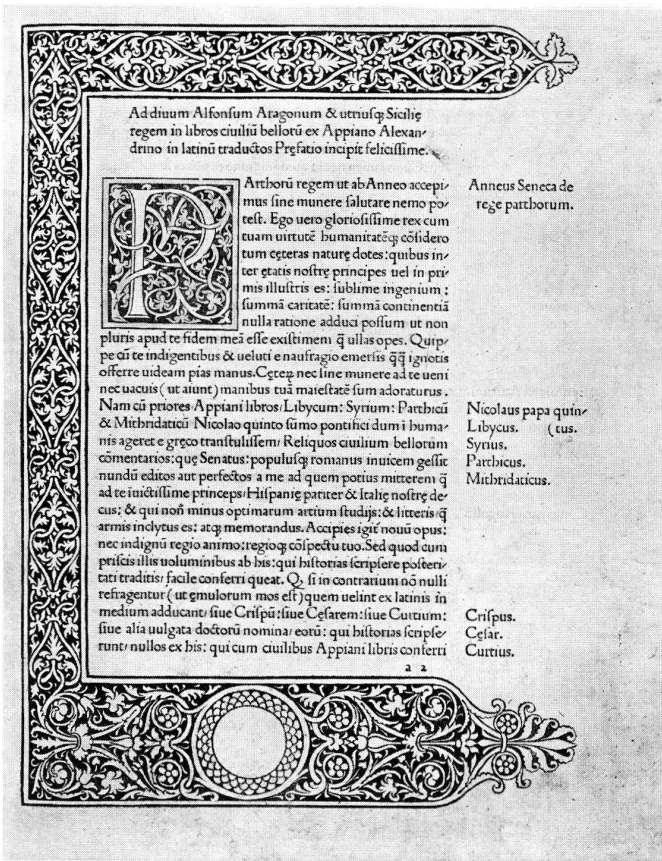 Ad diuum Alfonsum Aragonum & utriusq; Sicilię
regem in libros ciuiliũ bellorũ ex Appiano Alexan-
drino in latinũ traductos Pręfatio incipit felicissime.
P Arthorũ regem ut ab Anneo accepi-
mus sine munere salutare nemo po-
test. Ego uero gloriosissime rex cum
tuam uirtutẽ humanitatẽq; cõsidero
tum cęteras naturę dotes: quibus in-
ter ętatis nostrę principes uel in pri-
mis illustris es: sublime ingenium:
summã caritatẽ: summã continentiã
nulla ratione adduci possum ut non
pluris apud te fidem meã esse existimem q̃ ullas opes. Quip-
pe cũ te indigentibus & ueluti e naufragio emersis q̃q̃ ignotis
offerre uideam pias manus. Cęteꝝ nec sine munere ad te ueni
nec uacuis (ut aiunt) manibus tuã maiestatẽ sum adoraturus.
Nam cũ priores Appiani libros/Libycum: Syrium: Parthicũ
& Mithridaticũ Nicolao quinto sũmo pontifici dum ĩ huma-
nis ageret e gręco transtulissem/Reliquos ciuilium bellorum
cõmentarios: quę Senatus: populusq; romanus inuicem gessit
nundũ editos aut perfectos a me ad quem potius mitterem q̃
ad te iuictissime princeps/Hispanię pariter & Italię nostrę de-
cus: & qui non minus optimarum artium studijs: & litteris q̃
armis inclytus es: atq; memorandus. Accipies igit̃ nouũ opus:
nec indignũ regio animo: regioq; cõspectu tuo. Sed quod cum
priscis illis uoluminibus ab his: qui historias scripsere posteri-
tati traditis/facile conferri queat. Q; si in contrarium nõ nulli
refragentur (ut ęmulorum mos est) quem uelint ex latinis in
medium adducant/siue Crispũ: siue Cęsarem: siue Curtium:
siue alia uulgata doctorũ nomina/eorũ: qui historias scripse-
runt/nullos ex his: qui cum ciuilibus Appiani libris conferri
a 2
Anneus Seneca de
rege parthorum.
Nicolaus papa quin-
Libycus. (tus.
Syrius.
Parthicus.
Mithridaticus.
Crispus.
Cęsar.
Curtius.